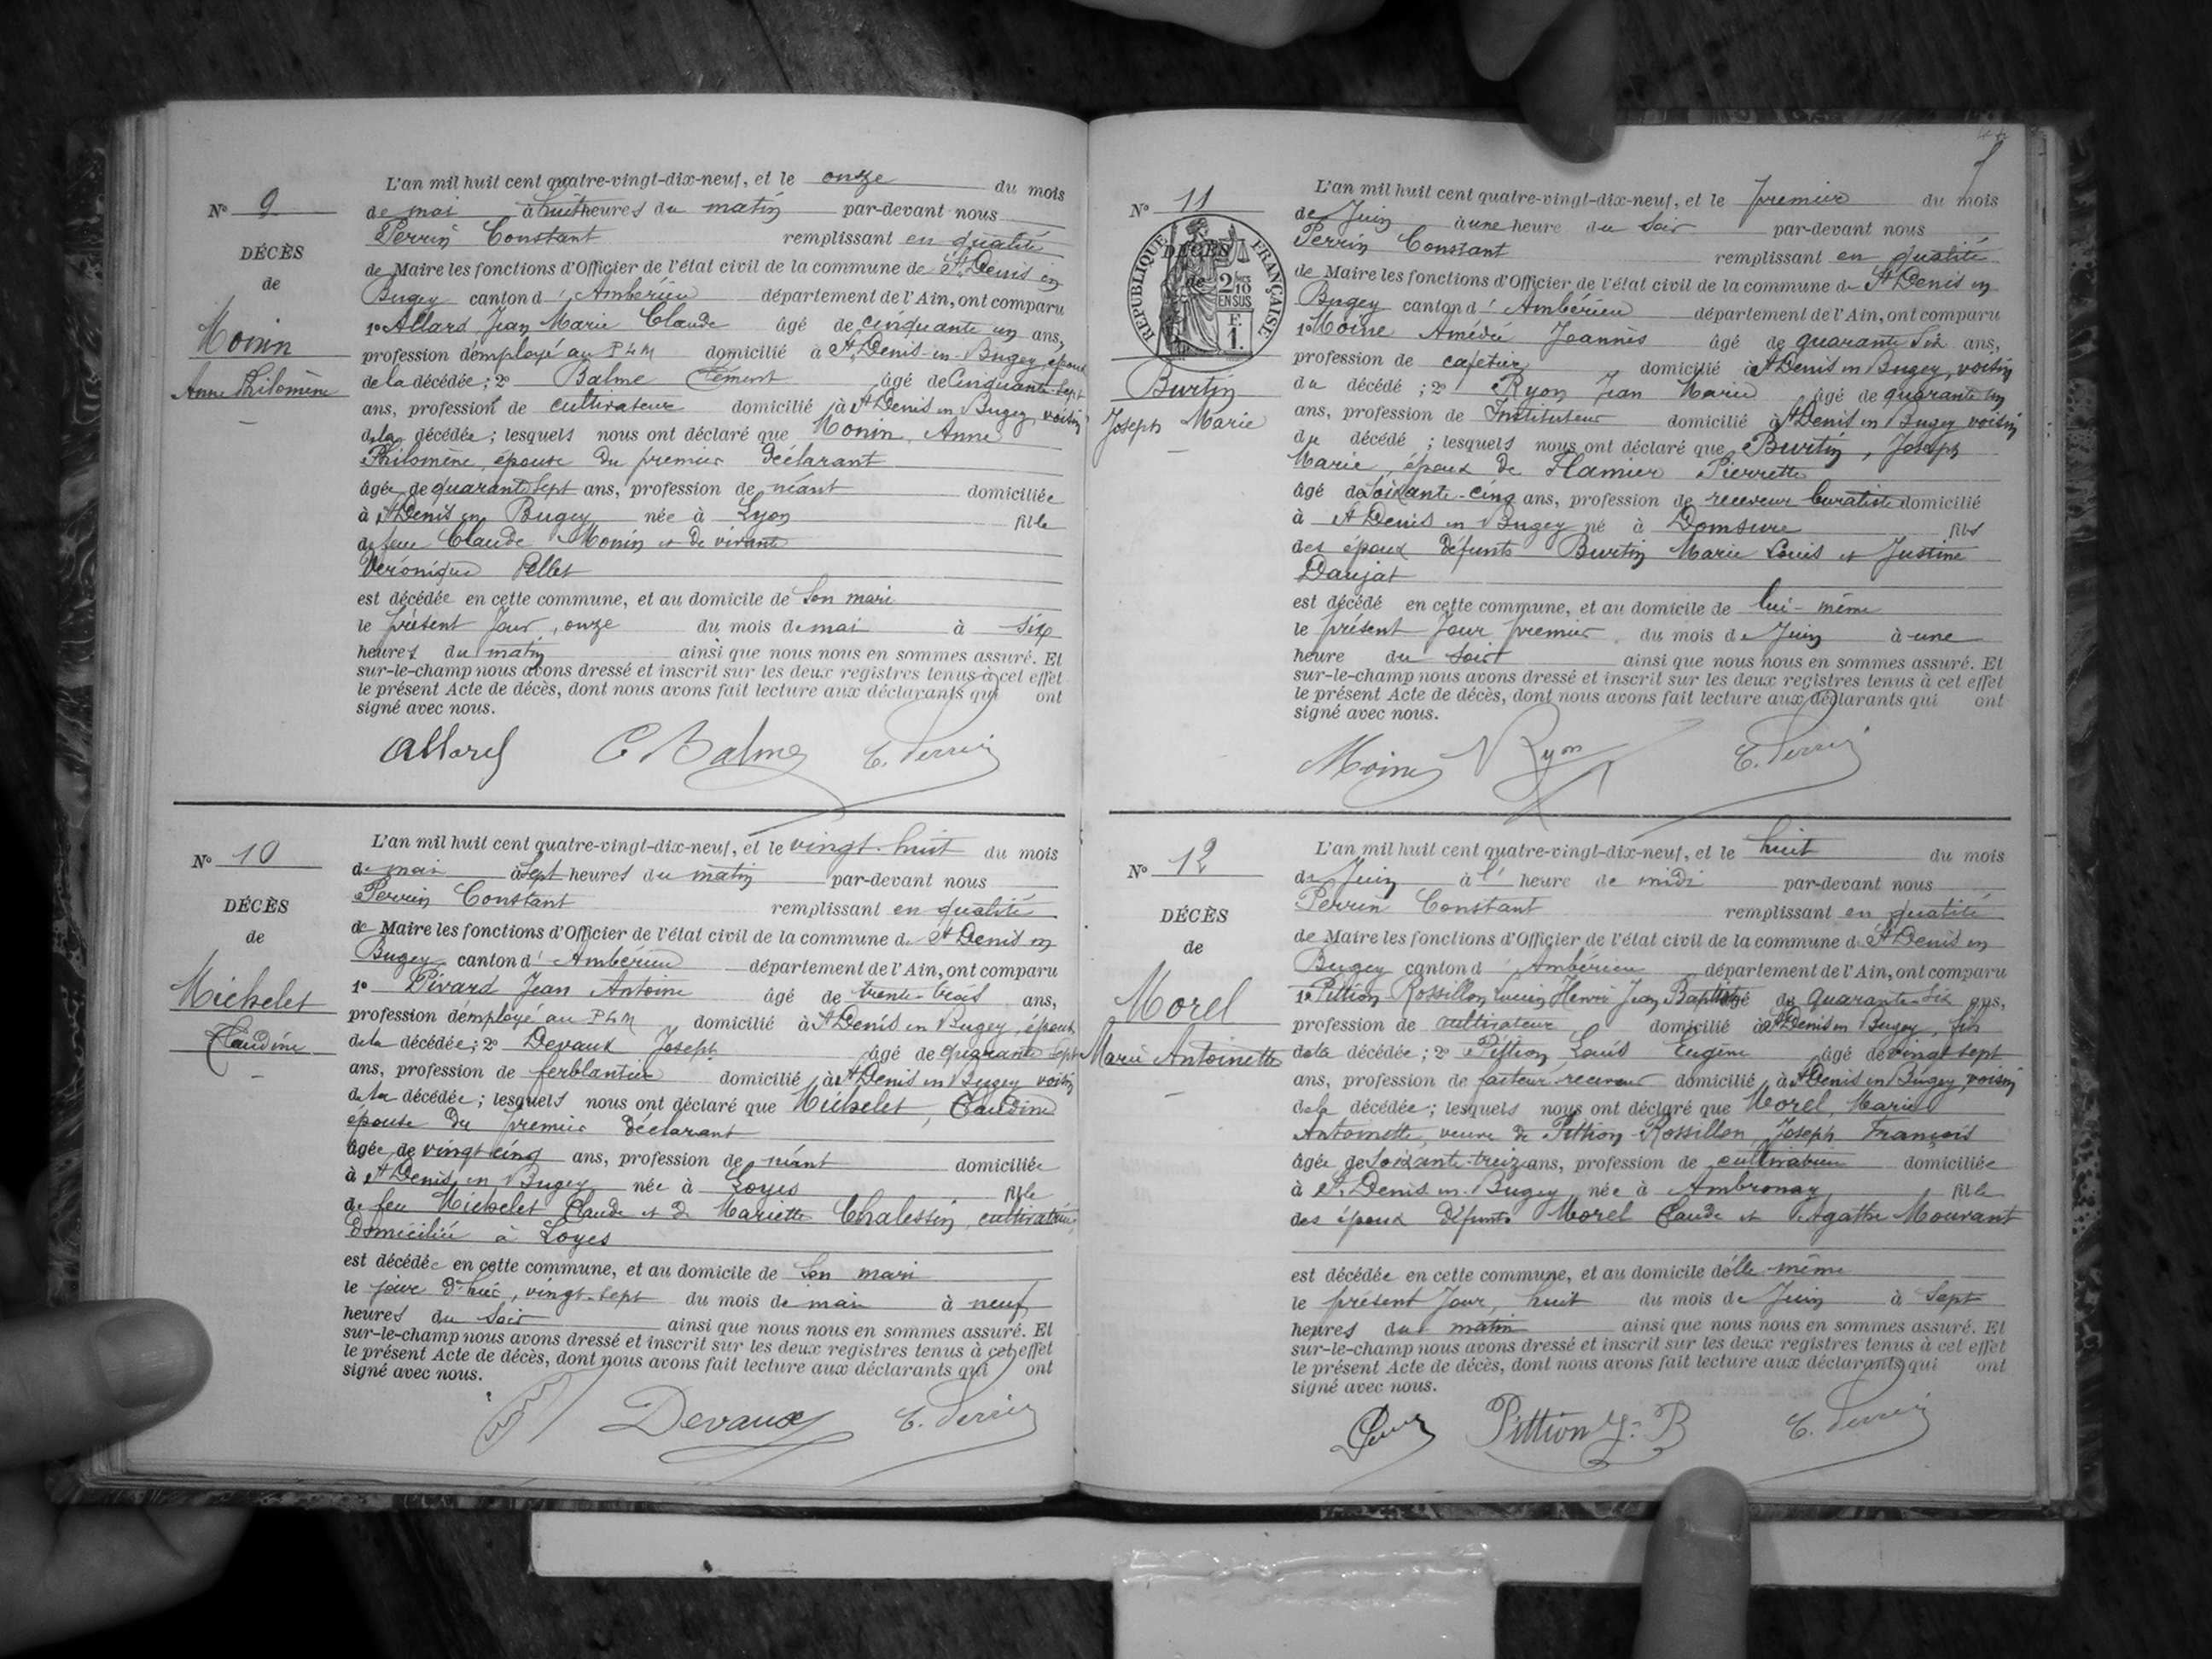 N° 9
DÉCÈS
de
Monin
Anne Philomène
L'an mil huit cent quatre-vingt-dix-neuf, et le onze du mois
de mai à huit heures du matin par-devant nous
Perrin Constant remplissant en qualité
de Maire les fonctions d'Officier de l'état civil de la commune de St Denis en
Bugey canton d'Ambérieu département de l'Ain, ont comparu
1° Allard Jean Marie Claude âgé de cinquante un ans,
profession d'employé au PLM domicilié à St Denis-en-Bugey, époux
de la décédée; 2° Balme Clément âgé de Cinquante-sept
ans, profession de cultivateur domicilié à St Denis en Bugey, voisin
de la décédée; lesquels nous ont déclaré que Monin, Anne
Philomène, épouse du premier déclarant
âgée de quarante sept ans, profession de néant domiciliée
à St Denis en Bugey née à Lyon fille
de feu Claude Monin et de vivante
Véronique Pellet
est décédée en cette commune, et au domicile de son mari
le présent jour, onze du mois de mai à six
heures du matin ainsi que nous nous en sommes assuré. Et
sur-le-champ nous avons dressé et inscrit sur les deux registres tenus à cet effet
le présent Acte de décès, dont nous avons fait lecture aux déclarants qui ont
signé avec nous.
Allard C Balme C. Perrin
N° 10
DÉCÈS
de
Michelet
Claudine
L'an mil huit cent quatre-vingt-dix-neuf, et le vingt-huit du mois
de mai à sept heures du matin par-devant nous
Perrin Constant remplissant en qualité
de Maire les fonctions d'Officier de l'état civil de la commune de St Denis en
Bugey canton d'Ambérieu département de l'Ain, ont comparu
1° Pivard Jean Antoine âgé de trente-trois ans,
profession d'employé au PLM domicilié à St Denis en Bugey, époux
de la décédée; 2° Devaux Joseph âgé de quarante sept
ans, profession de ferblantier domicilié à St Denis en Bugey voisin
de la décédée; lesquels nous ont déclaré que Michelet, Claudine
épouse du premier déclarant
âgée de vingt cinq ans, profession de néant domiciliée
à St Denis en Bugey née à Loyes fille
de feu Michelet Claude et de Mariette Chalessin, cultivatrice,
domiciliée à Loyes
est décédée en cette commune, et au domicile de son mari
le jour d'hier, vingt-sept du mois de mai à neuf
heures du soir ainsi que nous nous en sommes assuré. Et
sur-le-champ nous avons dressé et inscrit sur les deux registres tenus à cet effet
le présent Acte de décès, dont nous avons fait lecture aux déclarants qui ont
signé avec nous.
Devaux C. Perrin
N° 11
RÉPUBLIQUE FRANÇAISE
2/10 EN SUS
F. 1.
DÉCÈS
de
Burtin
Joseph Marie
L'an mil huit cent quatre-vingt-dix-neuf, et le premier du mois
de Juin à une heure du soir par-devant nous
Perrin Constant remplissant en qualité
de Maire les fonctions d'Officier de l'état civil de la commune de St Denis en
Bugey canton d'Ambérieu département de l'Ain, ont comparu
1° Moine Amédée Joannès âgé de quarante six ans,
profession de cafetier domicilié à St Denis en Bugey, voisin
du décédé; 2° Ryon Jean Marie âgé de quarante un
ans, profession de Instituteur domicilié à St Denis en Bugey voisin
du décédé; lesquels nous ont déclaré que Burtin, Joseph
Marie, époux de Hamier Pierrette
âgé de soixante-cinq ans, profession de receveur buraliste domicilié
à St Denis en Bugey né à Domsure fils
des époux défunts Burtin Marie Louis et Justine
Daujat
est décédé en cette commune, et au domicile de lui-même
le présent jour premier du mois de Juin à une
heure du soir ainsi que nous nous en sommes assuré. Et
sur-le-champ nous avons dressé et inscrit sur les deux registres tenus à cet effet
le présent Acte de décès, dont nous avons fait lecture aux déclarants qui ont
signé avec nous.
Moine Ryon C. Perrin
N° 12
DÉCÈS
de
Morel
Marie Antoinette
L'an mil huit cent quatre-vingt-dix-neuf, et le huit du mois
de Juin à l' heure de midi par-devant nous
Perrin Constant remplissant en qualité
de Maire les fonctions d'Officier de l'état civil de la commune de St Denis en
Bugey canton d'Ambérieu département de l'Ain, ont comparu
1° Pittion Rossillon Lucien Henri Jean Baptiste âgé de quarante-six ans,
profession de cultivateur domicilié à St Denis en Bugey, fils
de la décédée; 2° Pittion Louis Eugène âgé de vingt sept
ans, profession de facteur-receveur domicilié à St Denis en Bugey, voisin
de la décédée; lesquels nous ont déclaré que Morel, Marie
Antoinette, veuve de Pittion-Rossillon Joseph François
âgée de soixante-treize ans, profession de cultivatrice domiciliée
à St Denis en Bugey née à Ambronay fille
des époux défunts Morel Claude et Agathe Mouvant
est décédée en cette commune, et au domicile d'elle-même
le présent jour, huit du mois de Juin à sept
heures du matin ainsi que nous nous en sommes assuré. Et
sur-le-champ nous avons dressé et inscrit sur les deux registres tenus à cet effet
le présent Acte de décès, dont nous avons fait lecture aux déclarants qui ont
signé avec nous.
Pittion J. B C. Perrin